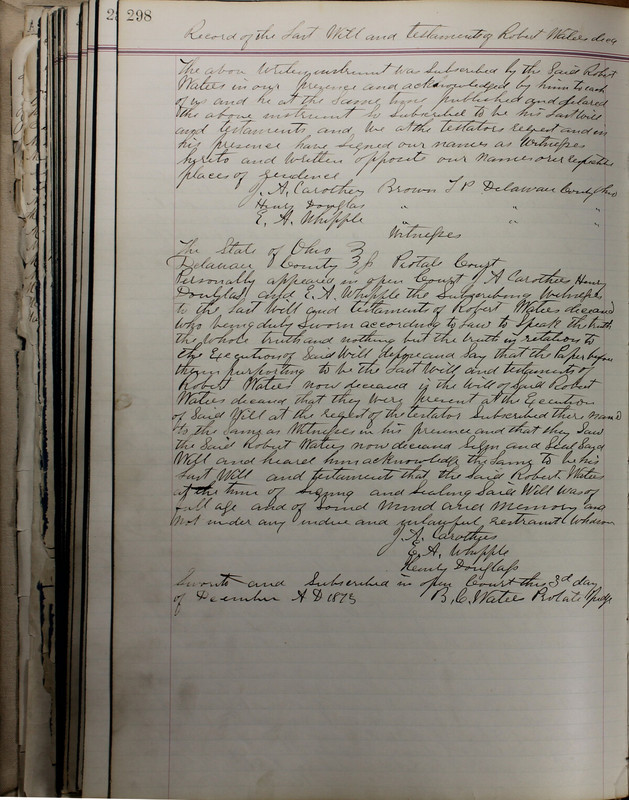 298
Record of the Last Will and testament of Robert Waters decd
The above writing instrument was Subscribed by the Said Robt
Waters in our presence and acknowledged by him to each
of us and he at the Same time published and declared
the above instrument so Subscribed to be his Last Will
and testament, and we at the testators request and in
his presence have Signed our names as Witnesses
hereto and written opposite our names our respective
places of residence
J. A. Carothers Brown T P Delaware County Ohio
Henry Douglas " " "
E. A. Whipple " " "
Witnesses
The State of Ohio }
Delaware County } Probate Court
Personally appeared in open Court J A Carothers Henry
Douglas and E. A. Whipple the Subscribing Witnesses
to the Last Will and testament of Robert Waters deceased
who being duly Sworn according to law to Speak the truth
the whole truth and nothing but the truth in relation to
the Execution of Said Will depose and Say that the Paper before
them purporting to be the Last Will and testament of
Robert Waters now deceased is the Will of Said Robert
Waters deceased that they were present at the Execution
of Said Will at the request of the testator Subscribed there names
to the Same as Witnesses in his presence and that they Saw
the Said Robert Waters now deceased Sign and Seal Said
Will and heard him acknowledge the Same to be his
Last Will and testament that the Said Robert Waters
at the time of Signing and Sealing Said Will was of
full age and of Sound Mind and Memory and
not under any undue and unlawful restraint Whatsoever
J. A. Carothers
E. A. Whipple
Henry Douglass
Sworn and Subscribed in open Court this 3d day
of December A D 1875 B. C. Waters Probate Judge